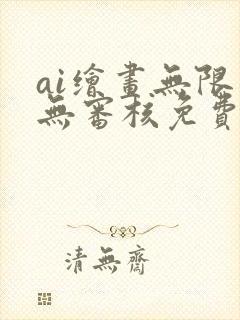 ai繪畫無限
無審核免費
清無齋